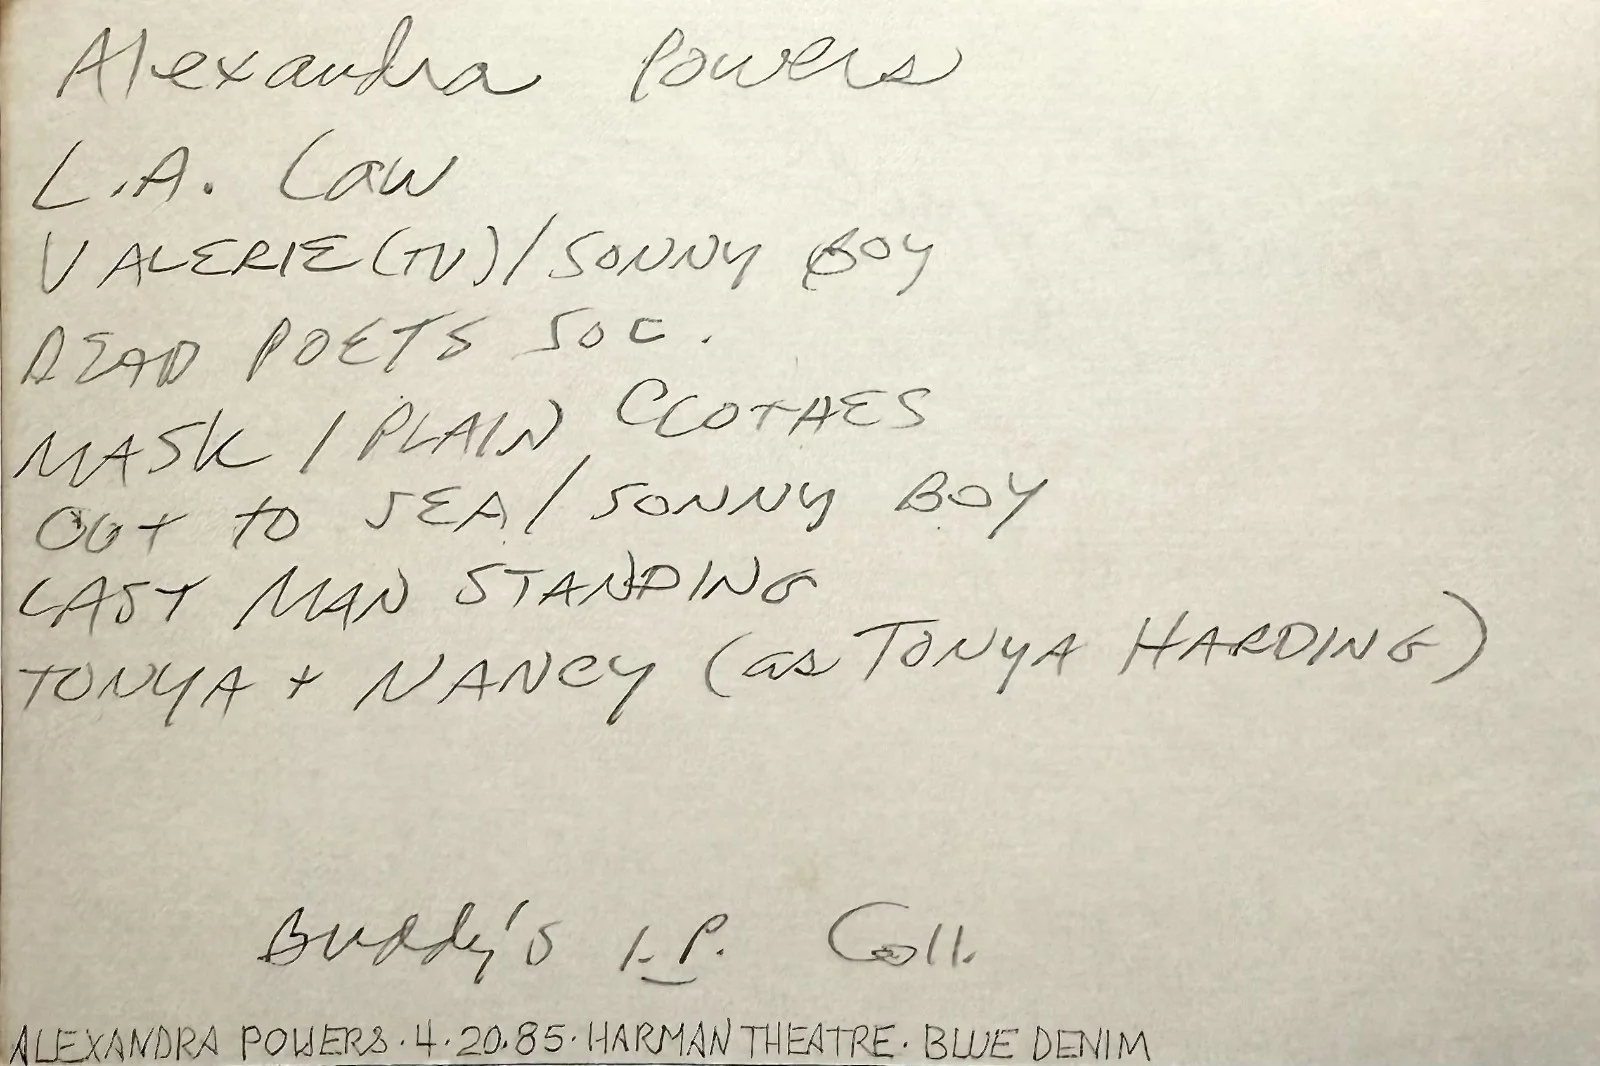 Alexandra Powers
L.A. Law
VALERIE (TV) / SONNY BOY
DEAD POETS SOC.
MASK / PLAIN CLOTHES
OUT TO SEA / SONNY BOY
LAST MAN STANDING
TONYA + NANCY (as TONYA HARDING)
Buddy's I.P. Coll.
ALEXANDRA POWERS · 4 · 20 · 85 · HARMAN THEATRE · BLUE DENIM